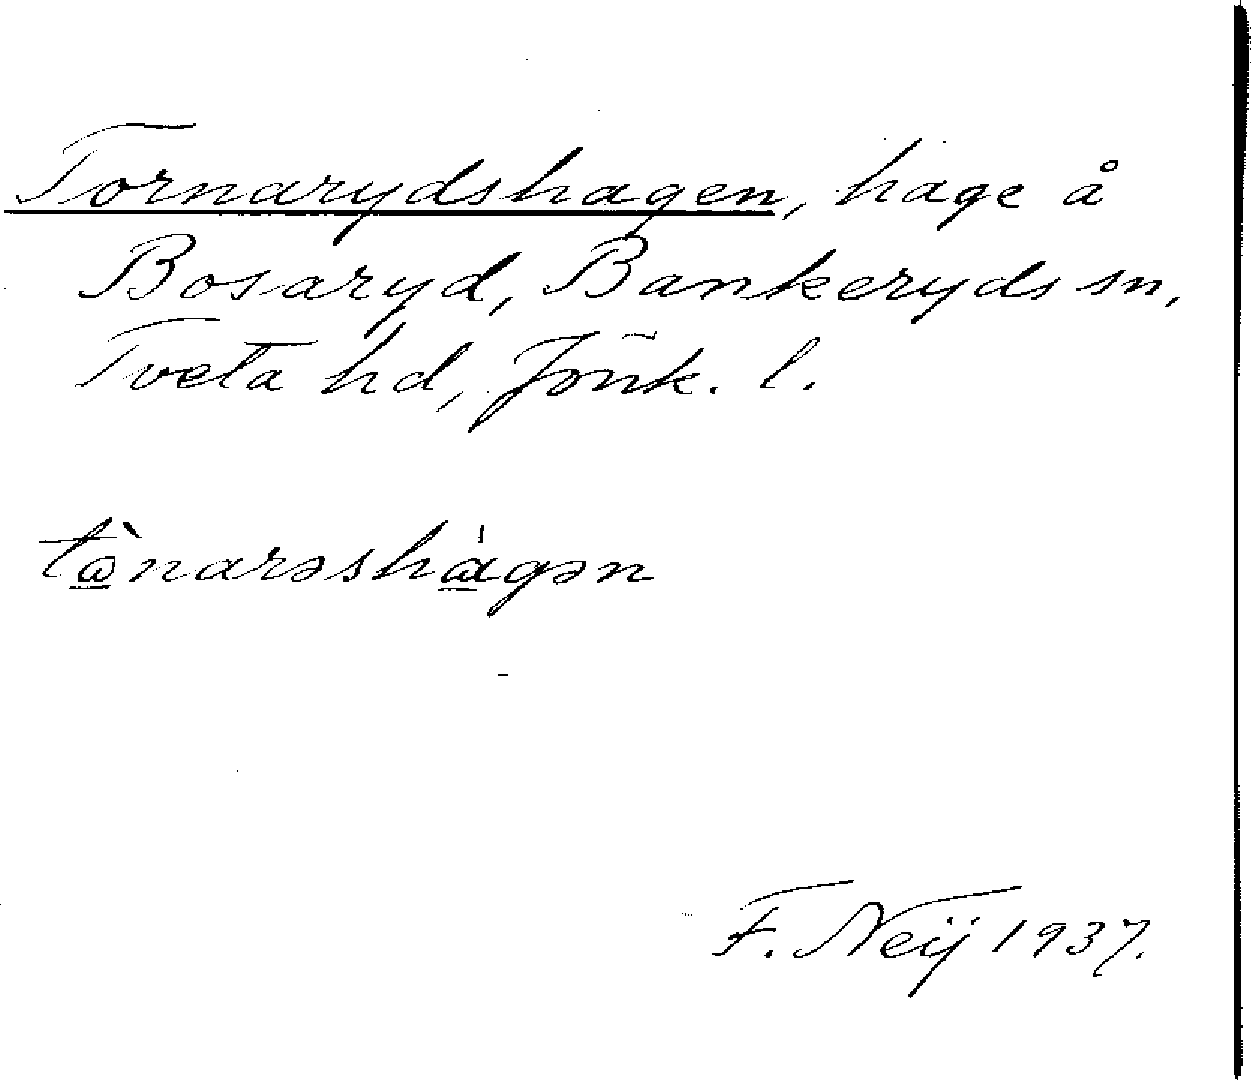 Tornarydshagen, hage å
Bosaryd, Bankeryds sn,
Tveta hd, Jönk. l.
tὰnarəshágən
F. Neij 1937.